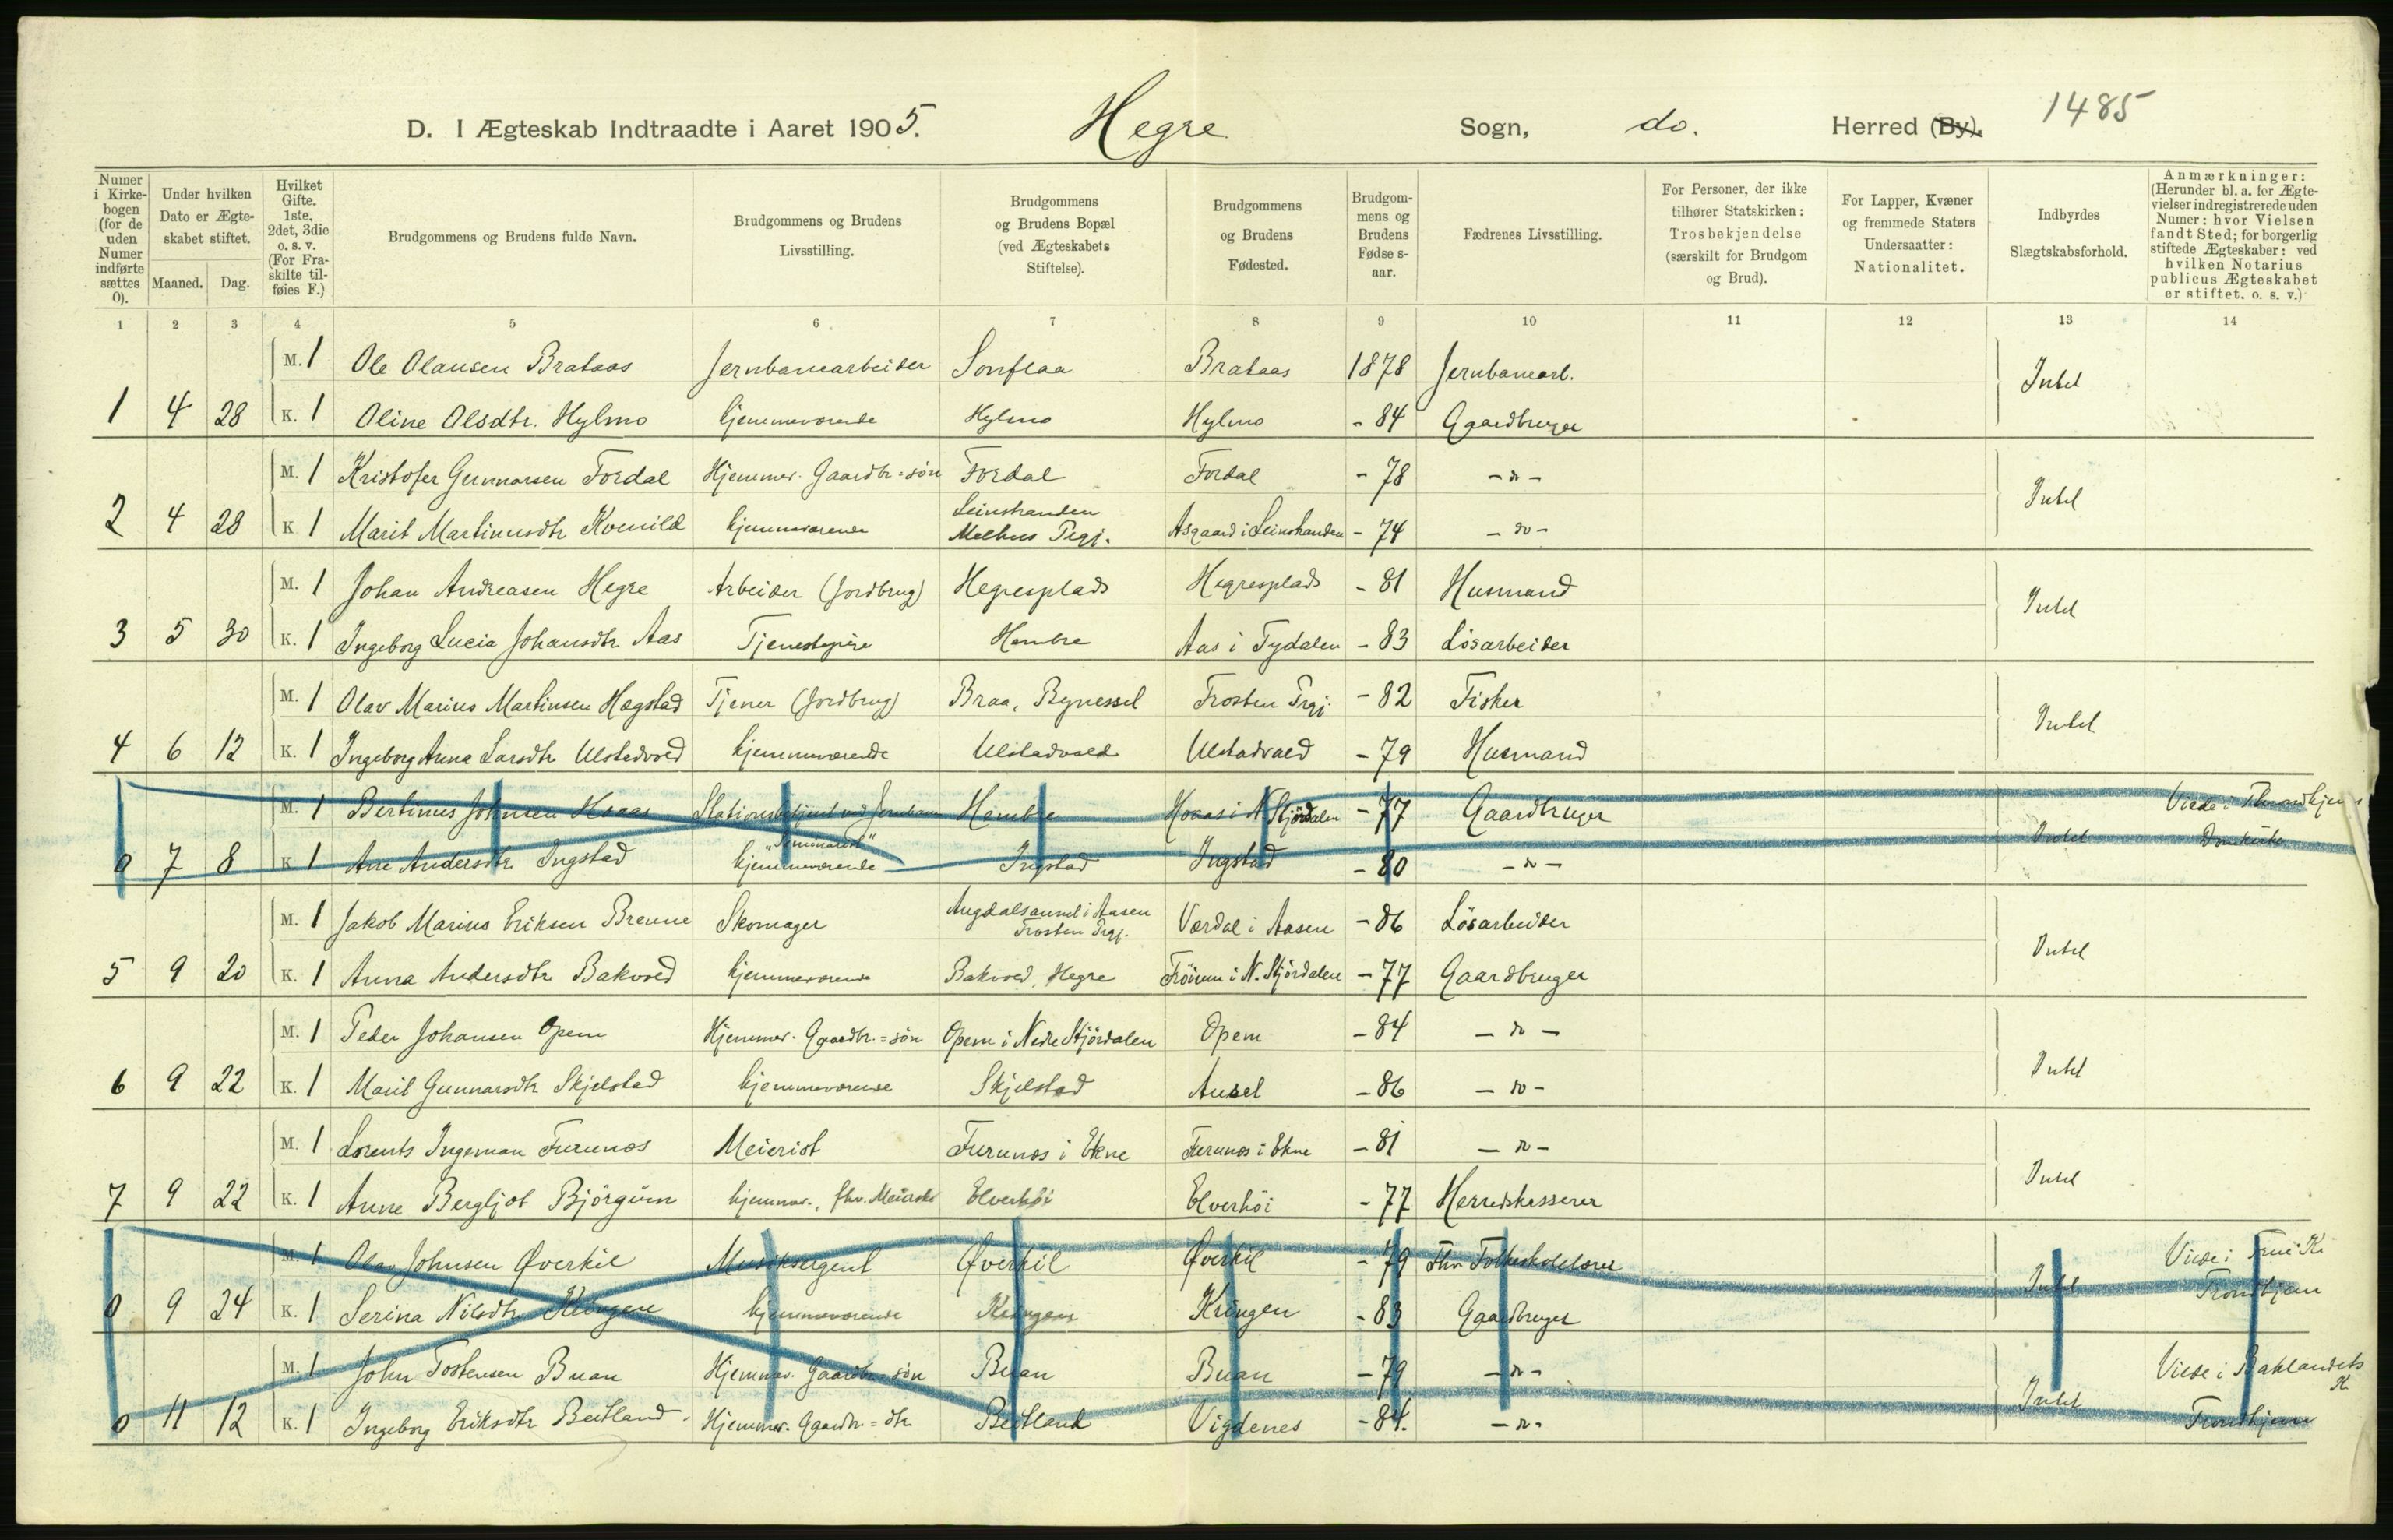 1485
D. I Ægteskab Indtraadte i Aaret 1905. Hegre Sogn, do. Herred (By).
Numer i Kirkebogen (for de uden Numer indførte sættes 0).
Under hvilken Dato er Ægteskabet stiftet.
Maaned. Dag.
Hvilket Gifte. 1ste, 2det, 3die o. s. v. (For Fraskilte tilføies F.)
Brudgommens og Brudens fulde Navn.
Brudgommens og Brudens Livsstilling.
Brudgommens og Brudens Bopæl (ved Ægteskabets Stiftelse).
Brudgommens og Brudens Fødested.
Brudgommens og Brudens Fødselsaar.
Fædrenes Livsstilling.
For Personer, der ikke tilhører Statskirken: Trosbekjendelse (særskilt for Brudgom og Brud).
For Lapper, Kvæner og fremmede Staters Undersaatter: Nationalitet.
Indbyrdes Slægtskabsforhold.
Anmærkninger: (Herunder bl. a. for Ægtevielser indregistrerede uden Numer: hvor Vielsen fandt Sted; for borgerlig stiftede Ægteskaber: ved hvilken Notarius publicus Ægteskabet er stiftet. o. s. v.)
1 2 3 4 5 6 7 8 9 10 11 12 13 14
M. 1 Ole Olausen Brataas Jernbanearbeider Sonflaa Brataas 1878 Jernbanearb. Intet
1 4 28 K. 1 Oline Olsdtr. Hylmo hjemmeværende Hylmo Hylmo - 84 Gaardbruger
M. 1 Kristofer Gunnarsen Fordal Hjemmev. Gaardbr=søn Fordal Fordal - 78 - do - Intet
2 4 28 K 1 Marit Martinusdtr Kvenild hjemmeværende Leinstranden Melhus Prgj. Asgaard i Leinstranden - 74 - do -
M. 1 Johan Andreasen Hegre Arbeider (Jordbrug) Hegresplads Hegresplads - 81 Husmand Intet
3 5 30 K. 1 Ingeborg Lucia Johansdtr Aas Tjenestepige Hembre Aas i Tydalen - 83 Løsarbeider
M. 1 Olav Marius Martinsen Hægstad Tjener (Jordbrug) Braa, Bynesset Frosten Prgj. - 82 Fisker Intet
4 6 12 K. 1 Ingeborg Anna Larsdtr Ulstadvald hjemmeværende Ulstadvald Ulstadvald - 79 Husmand
M. 1 Bertinus Johnsen Hoaas Stationsbetjent ved Jernbanen Hembre Hoaas i N. Stjørdalen - 77 Gaardbruger Viede i Throndhjems
0 7 8 K 1 Ane Andersdtr Ingstad hjemmeværende Ingstad Ingstad - 80 - do - Intet Domkirke
M. 1 Jakob Marius Eriksen Brenne Skomager i Aasen Frosten Prgj. Værdal i Aasen - 86 Løsarbeider Intet
5 9 20 K. 1 Anna Andersdtr Bakvold hjemmeværende Bakvold, Hegre i N. Stjørdalen - 77 Gaardbruger
M. 1 Peder Johansen Opem Hjemmev. Gaardbr.=søn Opem i Nedre Stjørdalen Opem - 84 - do - Intet
6 9 22 K. 1 Marit Gunnarsdtr Skjelstad hjemmeværende Skjelstad Aunet - 86 - do -
M. 1 Lorents Ingeman Furunes Meierist Furunes i Ekne Furunes i Ekne - 81 - do - Intet
7 9 22 K. 1 Anne Bergljot Bjørgum hjemmev., fhv. Meierske Elverhøi Elverhøi - 77 Herredskasserer
M. 1 Olav Johnsen Øverkil Musiksergent Øverkil Øverkil - 79 Fhv. Folkeskolelærer Intet Viede i Frue K.
0 9 24 K. 1 Serina Nilsdtr Kringen hjemmeværende Kringen Kringen - 83 Gaardbruger Trondhjem
M. 1 John Tostensen Buan Hjemmev. Gaardbr=søn Buan Buan - 79 - do - Intet Viede i Baklandets K.
0 11 12 K. 1 Ingeborg Eriksdtr Beitland Hjemmev. Gaardbr=dtr Beitland Vigdenes - 84. - do - Trondhjem